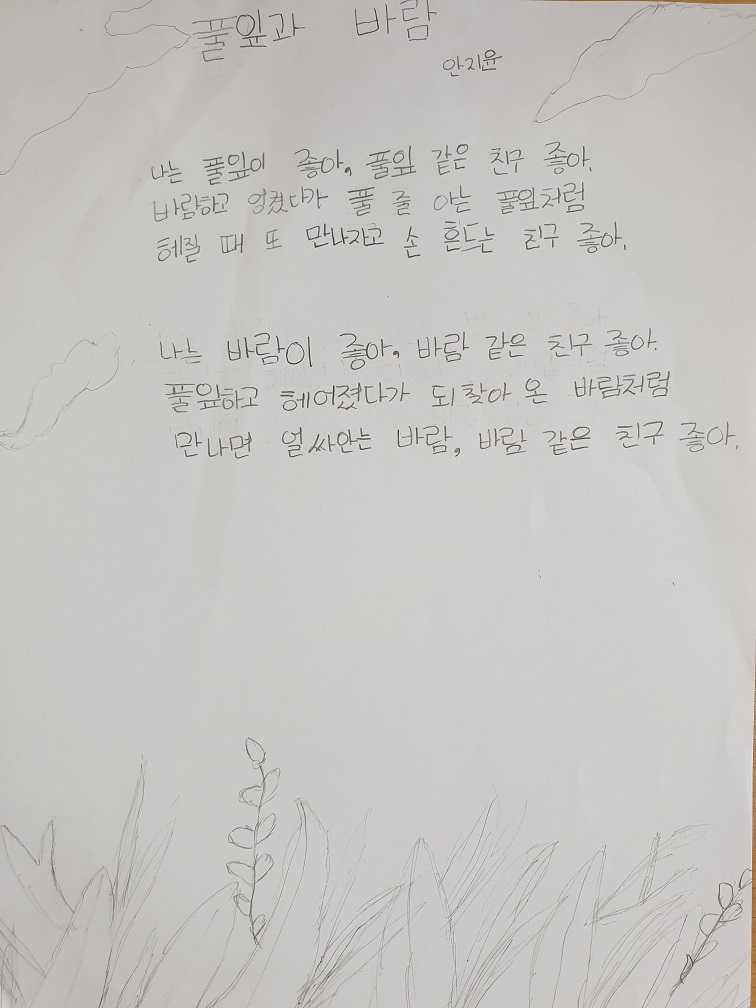 풀잎과 바람
안지윤
나는 풀잎이 좋아, 풀잎 같은 친구 좋아.
바람하고 엉켰다가 풀 줄 아는 풀잎처럼
헤질 때 또 만나자고 손 흔드는 친구 좋아.
나는 바람이 좋아, 바람 같은 친구 좋아.
풀잎하고 헤어졌다가 되찾아 온 바람처럼
만나면 얼싸안는 바람, 바람 같은 친구 좋아.